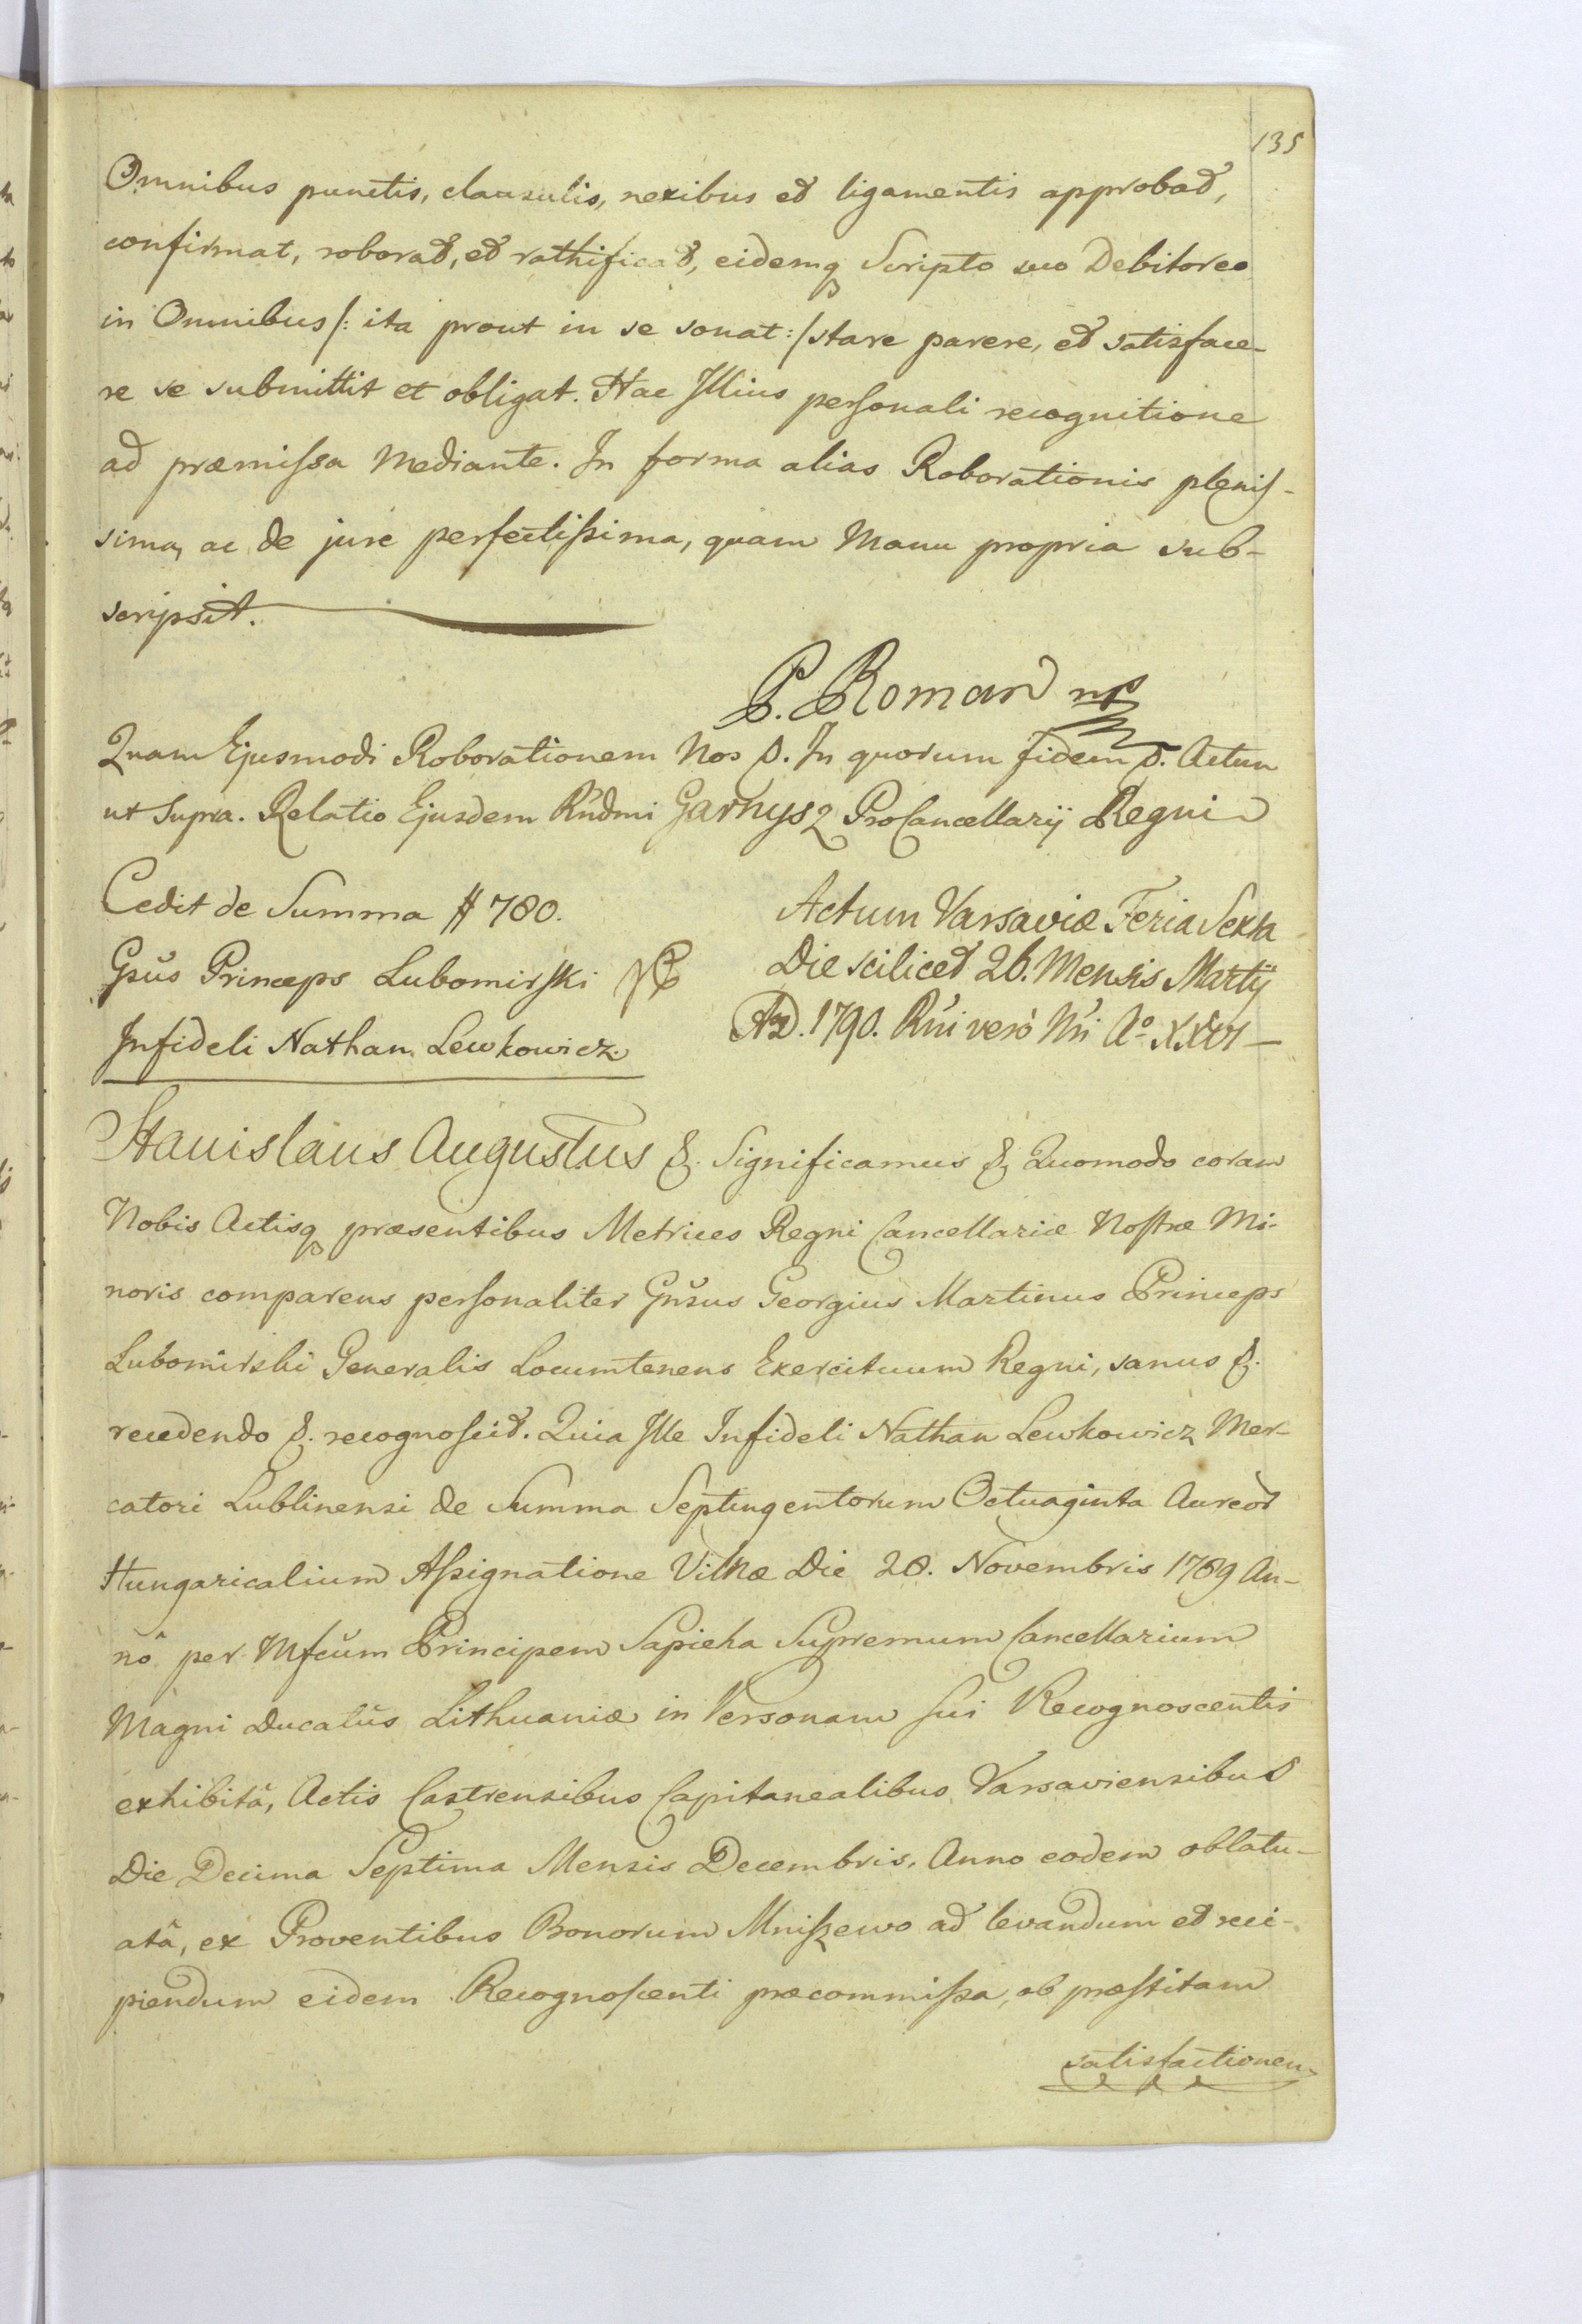 135
Omnibus punctis, clausulis, nexibus et ligamentis approbat,
confirmat, roborat, et rathificat, eidemq Scripto suo Debitoreo
in Omnibus /: ita prout in se sonat :/ stare parere, et satisface-
re se submittit et obligat. Hac Illius personali recognitione
ad præmissa Mediante. In forma alias Roborationis plenis-
sima, ac de jure perfectissima, quam Manu propria sub-
scripsit.
P. Roman mp
Quam Ejusmodi Roborationem Nos &. In quorum fidem &. Actum
ut Supra. Relatio Ejusdem Rndmi Garnysz ProCancellarij Regni
Cedit de Summa # 780.
Gsus Princeps Lubomirski
Infideli Nathan Lewkowicz.
Actum Varsaviæ Feria Sexta
Die scilicet 26. Mensis Martij
AD. 1790. Rni vero Nri Aº XXVI
Stanislaus Augustus &. Significamus &. Quomodo coram
Nobis Actisq præsentibus Metrices Regni Cancellariæ Nostræ Mi-
noris comparens personaliter Gnsus Georgius Martinus Princeps
Lubomirski Generalis Locumtenens Exercituum Regni, sanus &.
recedendo &. recognoscit. Quia Ille Infideli Nathan Lewkowicz Mer-
catori Lublinensi de Summa Septingentorum Octuaginta Aureor
Hungaricalium Assignatione Vilnæ Die 28. Novembris 1789 An-
nô per Mfcum Principem Sapieha Supremum Cancellarium
Magni Ducatûs Lithuaniæ in Personam sui Recognoscentis
exhibitâ, Actis Castrensibus Capitanealibus Varsaviensibus
Die Decima Septima Mensis Decembris, Anno eodem oblatu-
atâ, ex Proventibus Bonorum Mniszewo ad levandum et reci-
piendum eidem Recognoscenti præcommissa, ob præstitam
satisfactionem